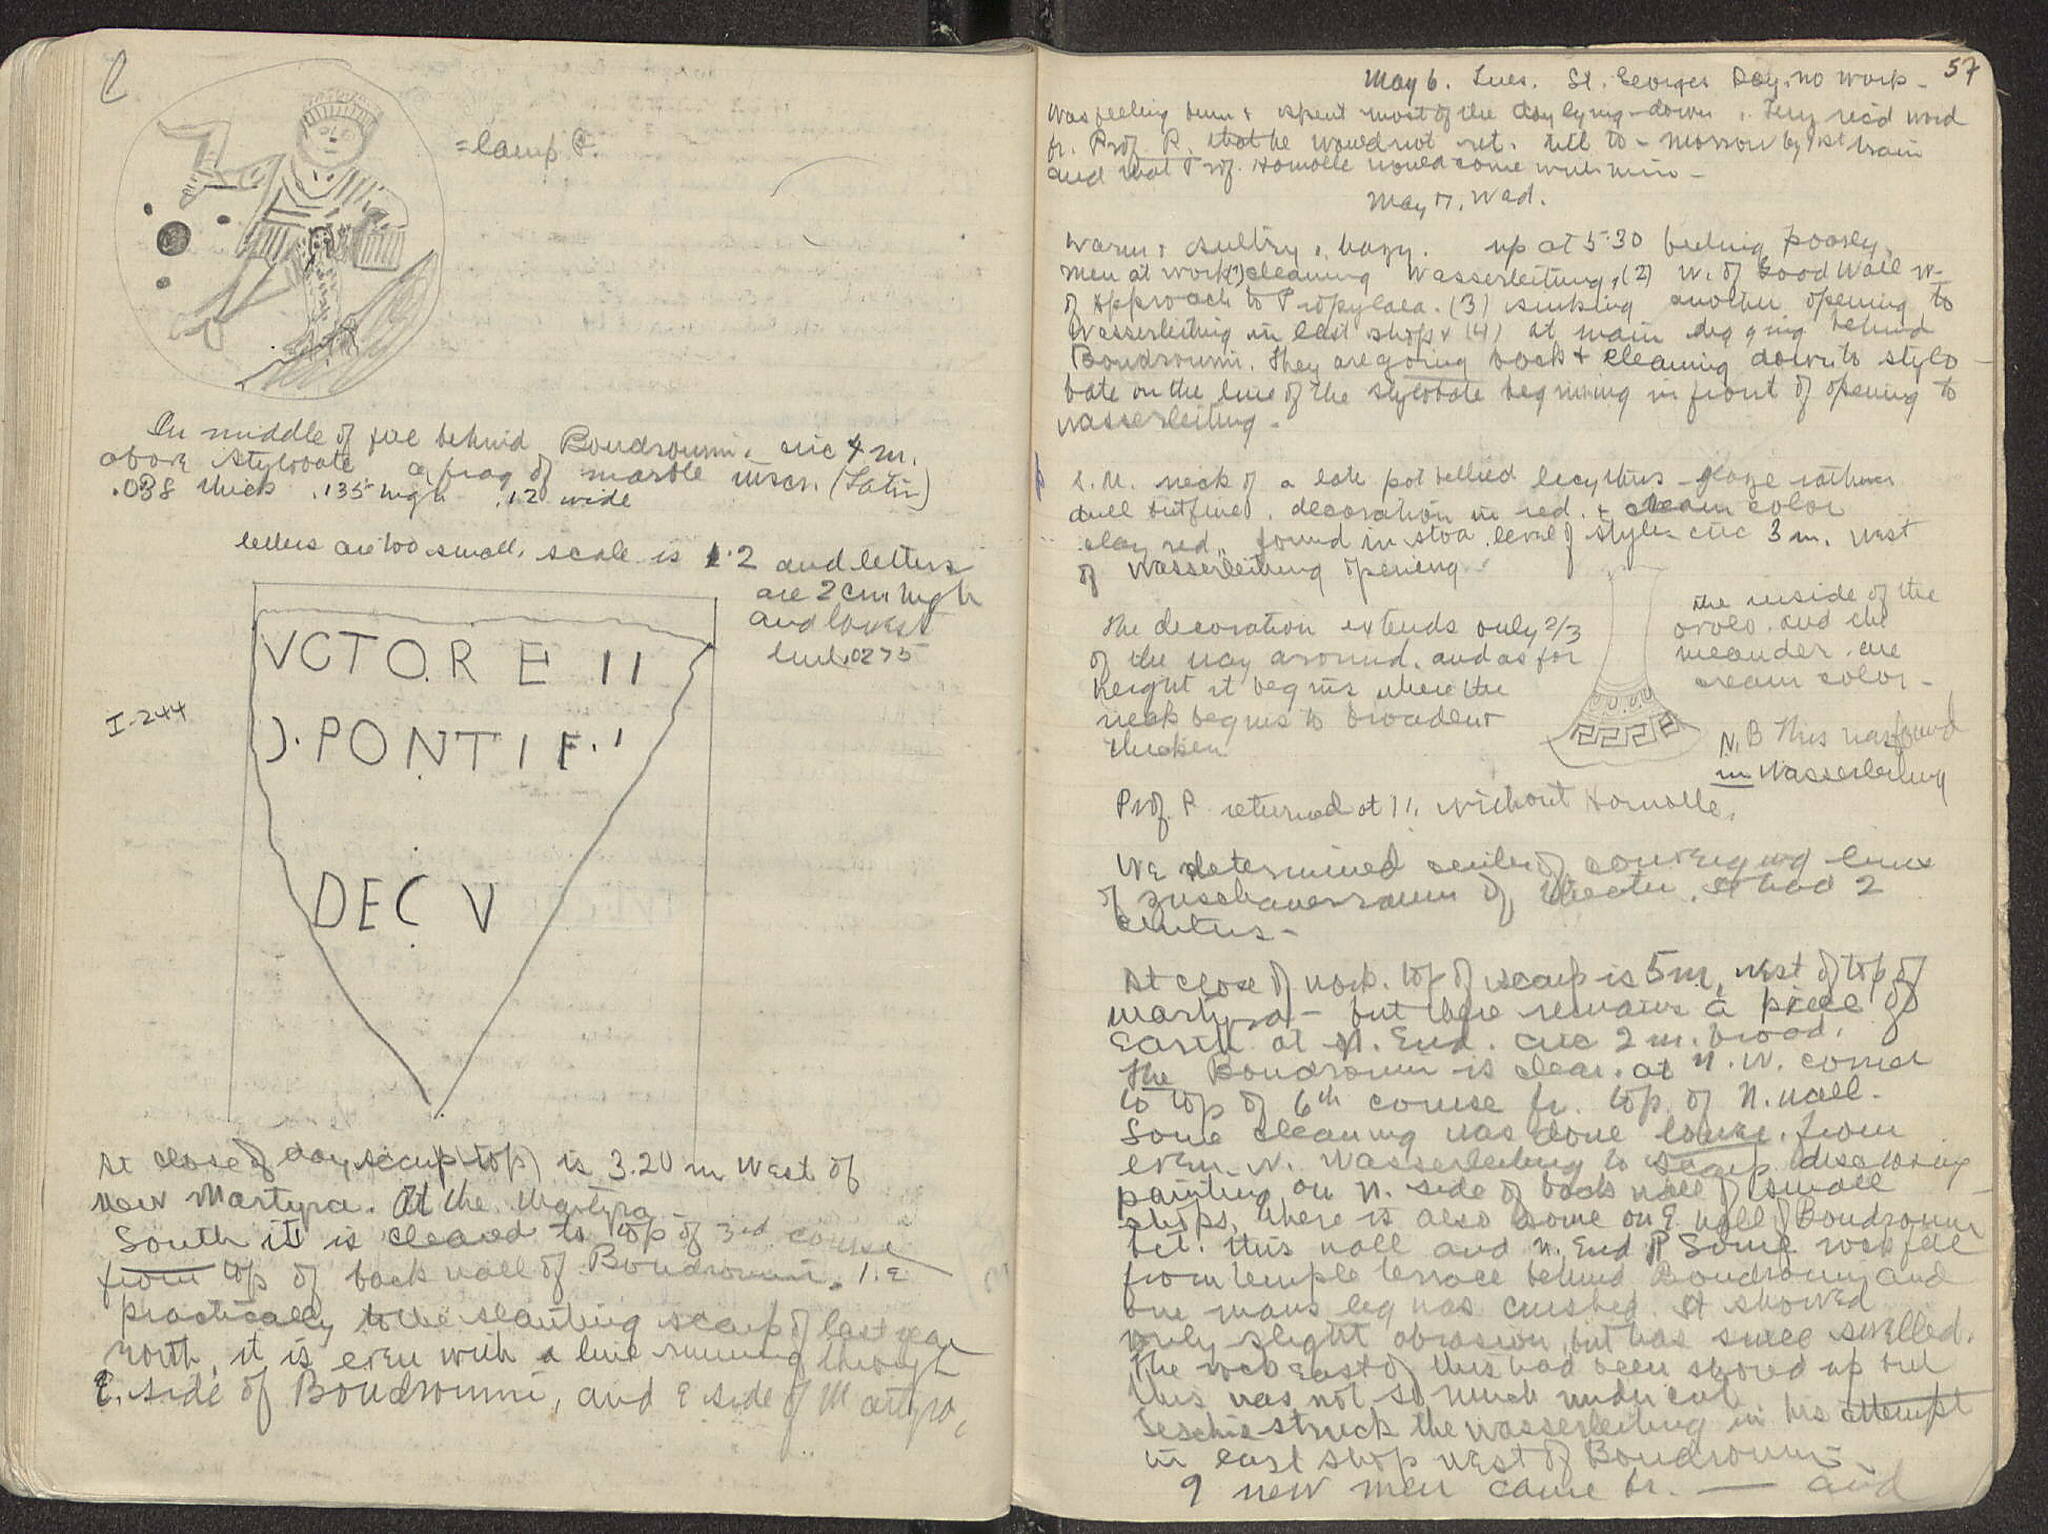 = lamp P.
In middle of fill behind Boudroumi. circ 4 m.
above stylobate a frag of marble inscr. (Latin)
.038 thick .135 high .12 wide
letters are too small. scale is 1:2 and letters
are 2 cm high
and lowest
line .0275
VCTORE II
I-244
). PONTIF. I
DEC V
At close of day scarp (top) is 3.20 m West of
new Martyra. At the Martyra
South it is cleared to top of 3rd course
from top of back wall of Boudroumi. I.E
practically to the slanting scarp of last year
North, it is even with a line running through
E. side of Boudroumi, and E side of Martyra,
57
May 6. Tues. St. Georges Day. no work -
Was feeling bum & spent most of the day lying down. rec'd word
fr. Prof. P. that he would not ret. till to-morrow by 1st train
and that Prof. Homolle would come with him -
May 7. Wed.
Warm & sultry & hazy. up at 5:30 feeling poorly.
Men at work (1) cleaning Wasserleitung, (2) W. of Good Wall W-
of Approach to Propylaea. (3) sinking another opening to
Wasserleitung in last shop & (4) at main digging behind
Boudroumi. They are going back & cleaning down to stylo-
bate on the line of the stylobate beginning in front of opening to
wasserleitung -
neck of a late pot bellied lecythus - glaze rather
dull decoration in red. & cream color
clay red. found in stoa level of stylo. circ 3 m. West
of Wasserleitung opening.
The decoration extends only 2/3
of the way around. and as for
height it begins where the
neck begins to broaden &
thicken
the inside of the
ovolo. and the
meander are
cream color -
N.B This was found
in Wasserleitung
Prof. P. returned at 11. without Homolle.
We determined center of converging lines
of zuschauerraum of theater. It had 2
centers -
At close of work. top of scarp is 5 m. West of top of
martyra - but there remains a piece of
Earth at N. End. circ 2 m. broad.
The Boudroumi is clear. at N.W. corner
to top of 6th course fr. top of N. wall.
Some cleaning was done lower. from
even W. Wasserleitung to scarp disclosing
painting on N. side of back wall of small
shops. there is also some on E wall of Boudroumi
bet. this wall and N. End Some rock fell
from temple terrace behind Boudroumi and
one mans leg was crushed. It showed
only slight abrasion, but has since swelled.
The rock East of this had been shored up but
this was not so much under cut
struck the wasserleitung in his attempt
in east shop west of Boudroumi -
9 new men came fr. — and